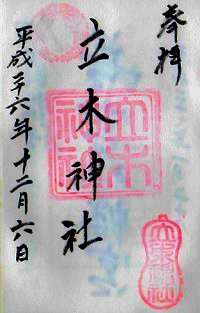 奉拝
立木神社
平成二十六年十二月六日
立木神社